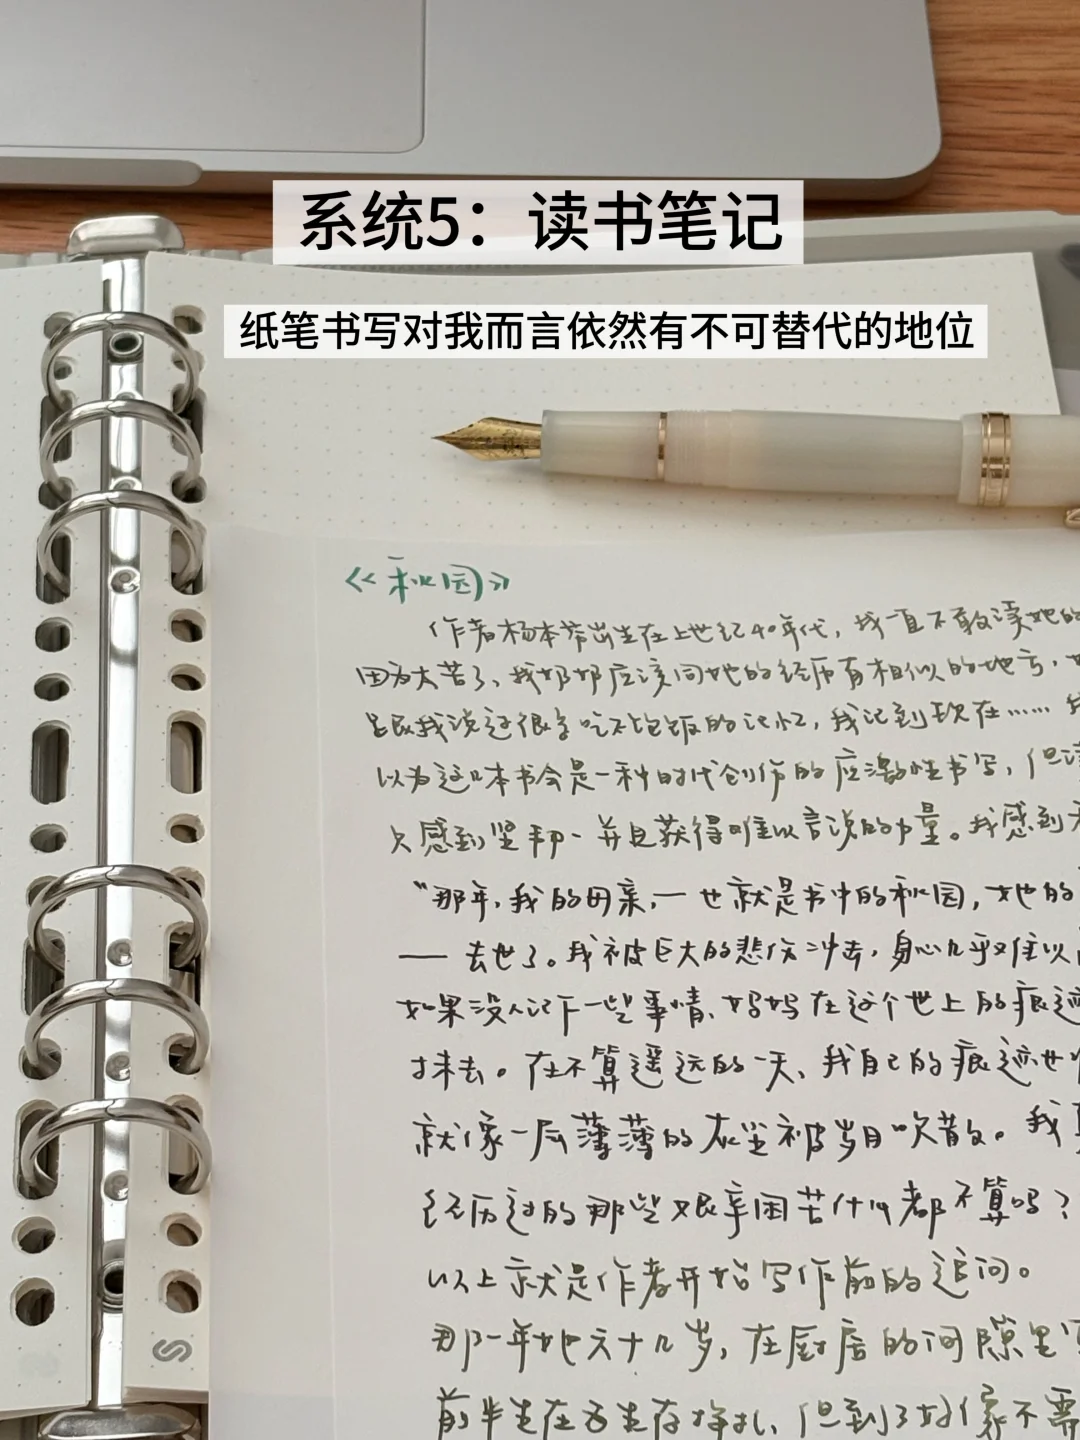 系统5：读书笔记
纸笔书写对我而言依然有不可替代的地位
《秋园》
作者杨本芬出生在上世纪40年代，我一直不敢读她的
因为太苦了、我奶奶应该同她的经历有相似的地方，
跟我说过很多吃不饱饭的记忆，我记到现在……
以为这本书会是一种时代创伤的应激性书写，但
只感到坚韧－并且获得难以言说的力量。我感到
“那年，我的母亲，—也就是书中的秋园，她的
——去世了。我被巨大的悲伤冲击，身心几乎难以
如果没人记下一些事情、妈妈在这个世上的痕迹
抹去。在不算遥远的一天、我自己的痕迹也
就像一层薄薄的灰尘被岁月吹散。我
经历过的那些艰辛困苦什么都不算吗？
以上就是作者开始写作前的追问。
那一年她六十几岁，在厨房的间隙里
前半生在为生存挣扎，但到了好像不需